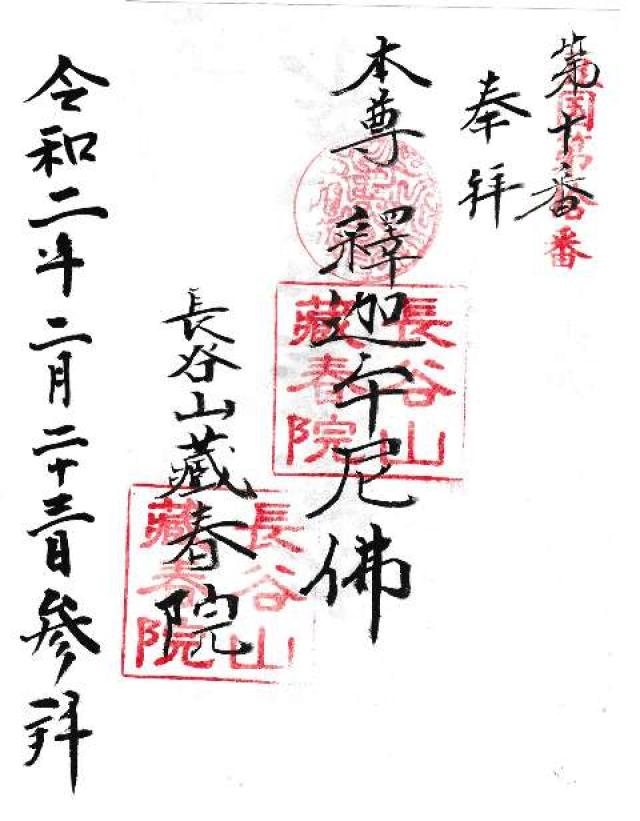 第十番
国第番
奉拝
本尊 釋迦牟尼佛
長谷山
藏春院
長谷山藏春院
長谷山
藏春院
令和二年二月二十三日參拝